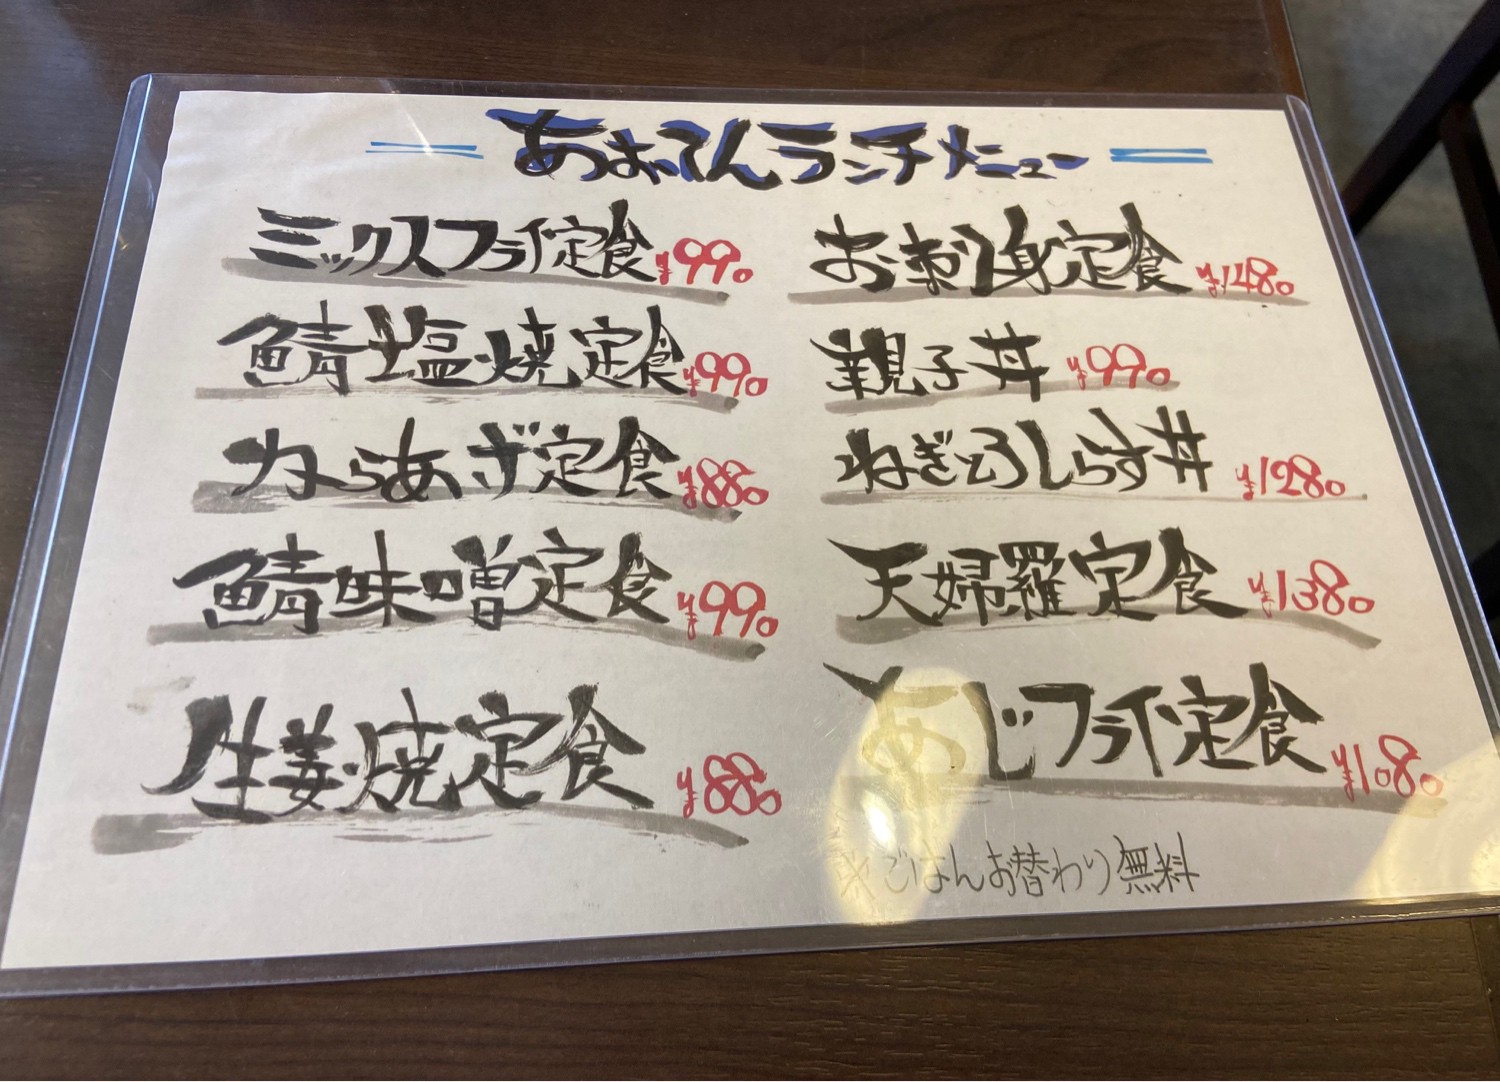 あおてんランチメニュー
ミックスフライ定食 ¥990
鯖塩焼定食 ¥990
からあげ定食 ¥880
鯖味噌定食 ¥990
生姜焼定食 ¥880
お刺身定食 ¥1480
親子丼 ¥990
ねぎとろしらす丼 ¥1280
天婦羅定食 ¥1380
あじフライ定食 ¥1080
※ごはんお替わり無料